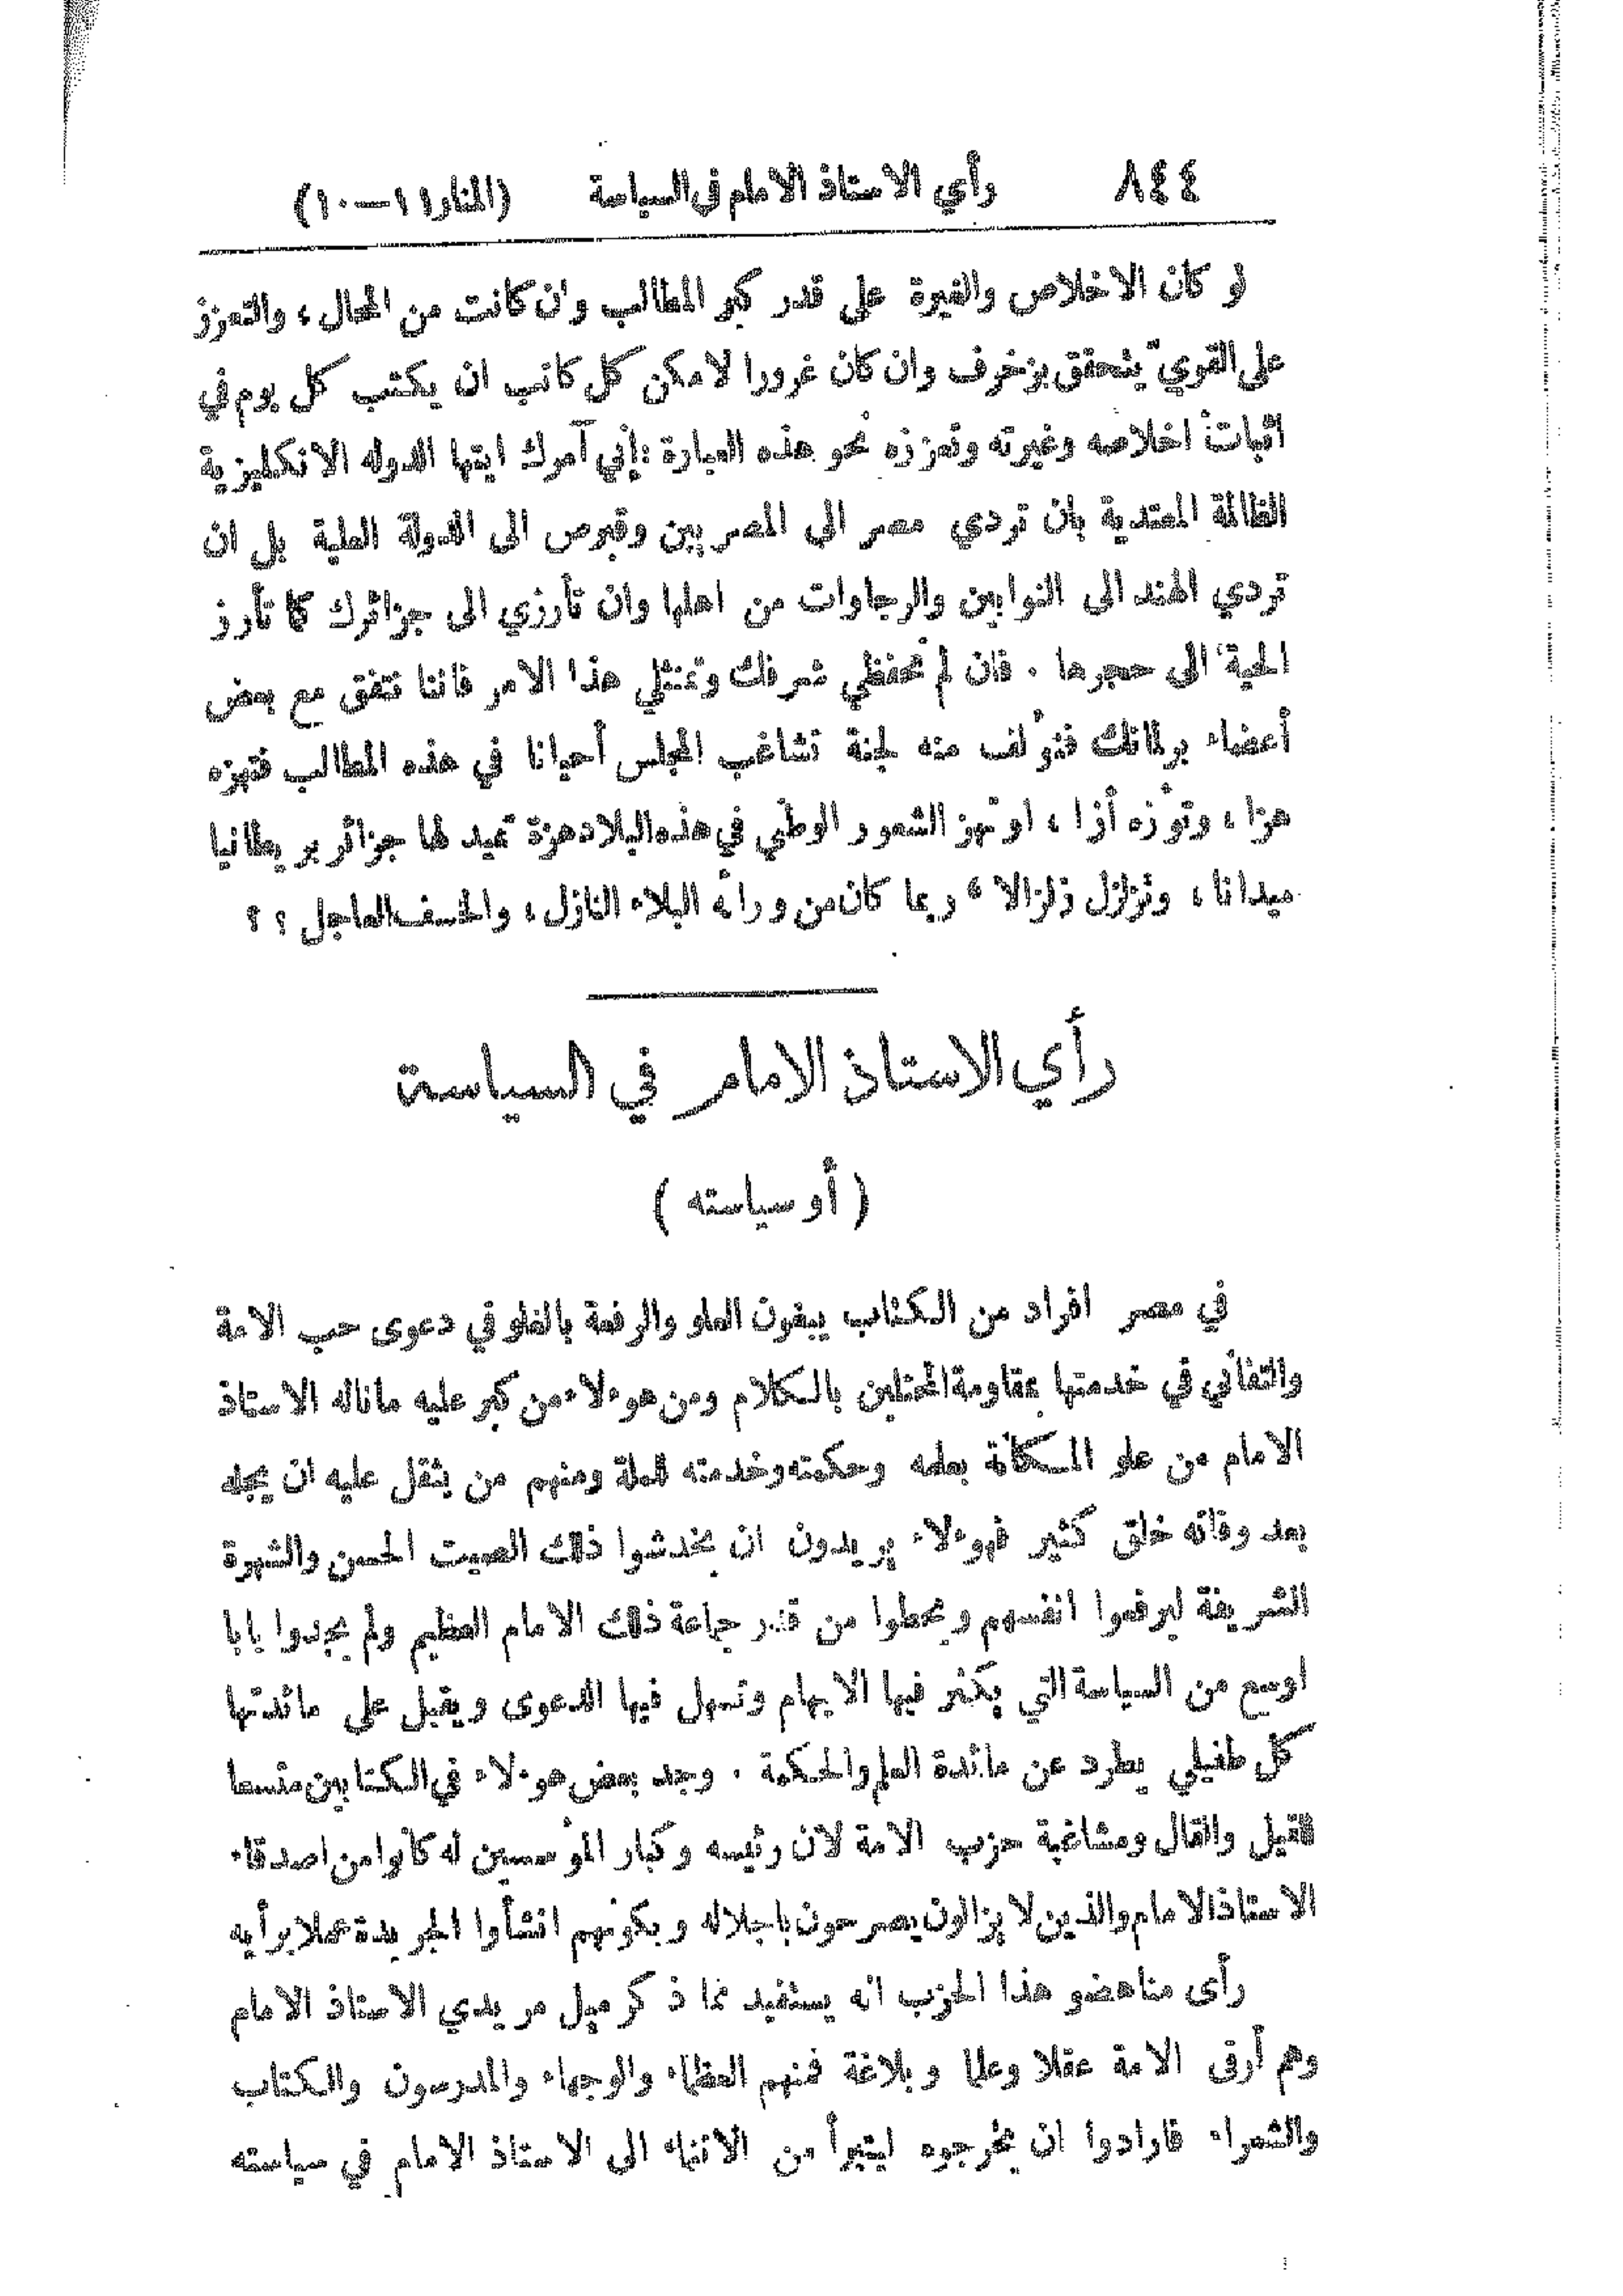 ٨٤٤ رأي الاستاذ الامام في السياسة (المنار ١١—١٠)
لو كان الاخلاص والغيرة على قدر كبر المطالب وان كانت من المحال ، والتعزز
على القوي يتحقق بزخرف وان كان غرورا لامكن كل كاتب ان يكتب كل يوم في
اثبات اخلاصه وغيرته وتعززه نحو هذه العبارة : إني آمرك ايتها الدوله الانكليزية
الظالمة المعتدية بان تردي مصر الى المصريين وقبرص الى الدولة العلية بل ان
تردي الهند الى النوابين والرجاوات من اهلها وان تأرزي الى جزائرك كما تأرز
الحية الى حجرها . فان لم تحفظي شرفك وتمتثلي هذا الامر فاننا نتفق مع بعض
أعضاء برلمانك فنؤلف منه لجنة تشاغب المجلس أحيانا في هذه المطالب فتهزه
هزا ، وتؤزه أزا ، او تهز الشعور الوطني في هذه البلاد هزة تميد لها جزائر بريطانيا
ميدانا ، وتزلزل زلزالا ، ربما كان من ورائه البلاء النازل ، والخسف العاجل ؟ ؟
رأي الاستاذ الامام في السياسة
( أو سياسته )
في مصر افراد من الكتاب يبغون العلو والرفعة بالغلو في دعوى حب الامة
والتفاني في خدمتها بمقاومة المحتلين بالكلام ومن هوءلاء من كبر عليه ماناله الاستاذ
الامام من علو المكانة بعلمه وحكمته وخدمته للملة ومنهم من يثقل عليه ان يجله
بعد وفاته خلق كثير فهوءلاء يريدون ان يخدشوا ذلك الصيت الحسن والشهرة
الشريفة ليرفعوا انفسهم ويحطوا من قدر جماعة ذلك الامام العظيم ولم يجدوا بابا
اوسع من السياسة التي يكثر فيها الايهام وتسهل فيها الدعوى ويقبل على مائدتها
كل طفيلي يطرد عن مائدة العلم والحكمة . وجد بعض هوءلاء في الكتابين متسعا
للقيل والقال ومشاغبة حزب الامة لان رئيسه وكبار المؤسسين له كانوا من اصدقاء
الاستاذ الامام والذين لا يزالون يصرحون باجلاله وبكونهم انشأوا الجريدة عملا برأيه
رأى مناهضو هذا الحزب انه يستفيد مما ذكر ميل مريدي الاستاذ الامام
وهم أرقى الامة عقلا وعلما وبلاغة فمنهم العظماء والوجهاء والمدرسون والكتاب
والشعراء فارادوا ان يحرجوه ليتبرأ من الانتماء الى الاستاذ الامام في سياسته